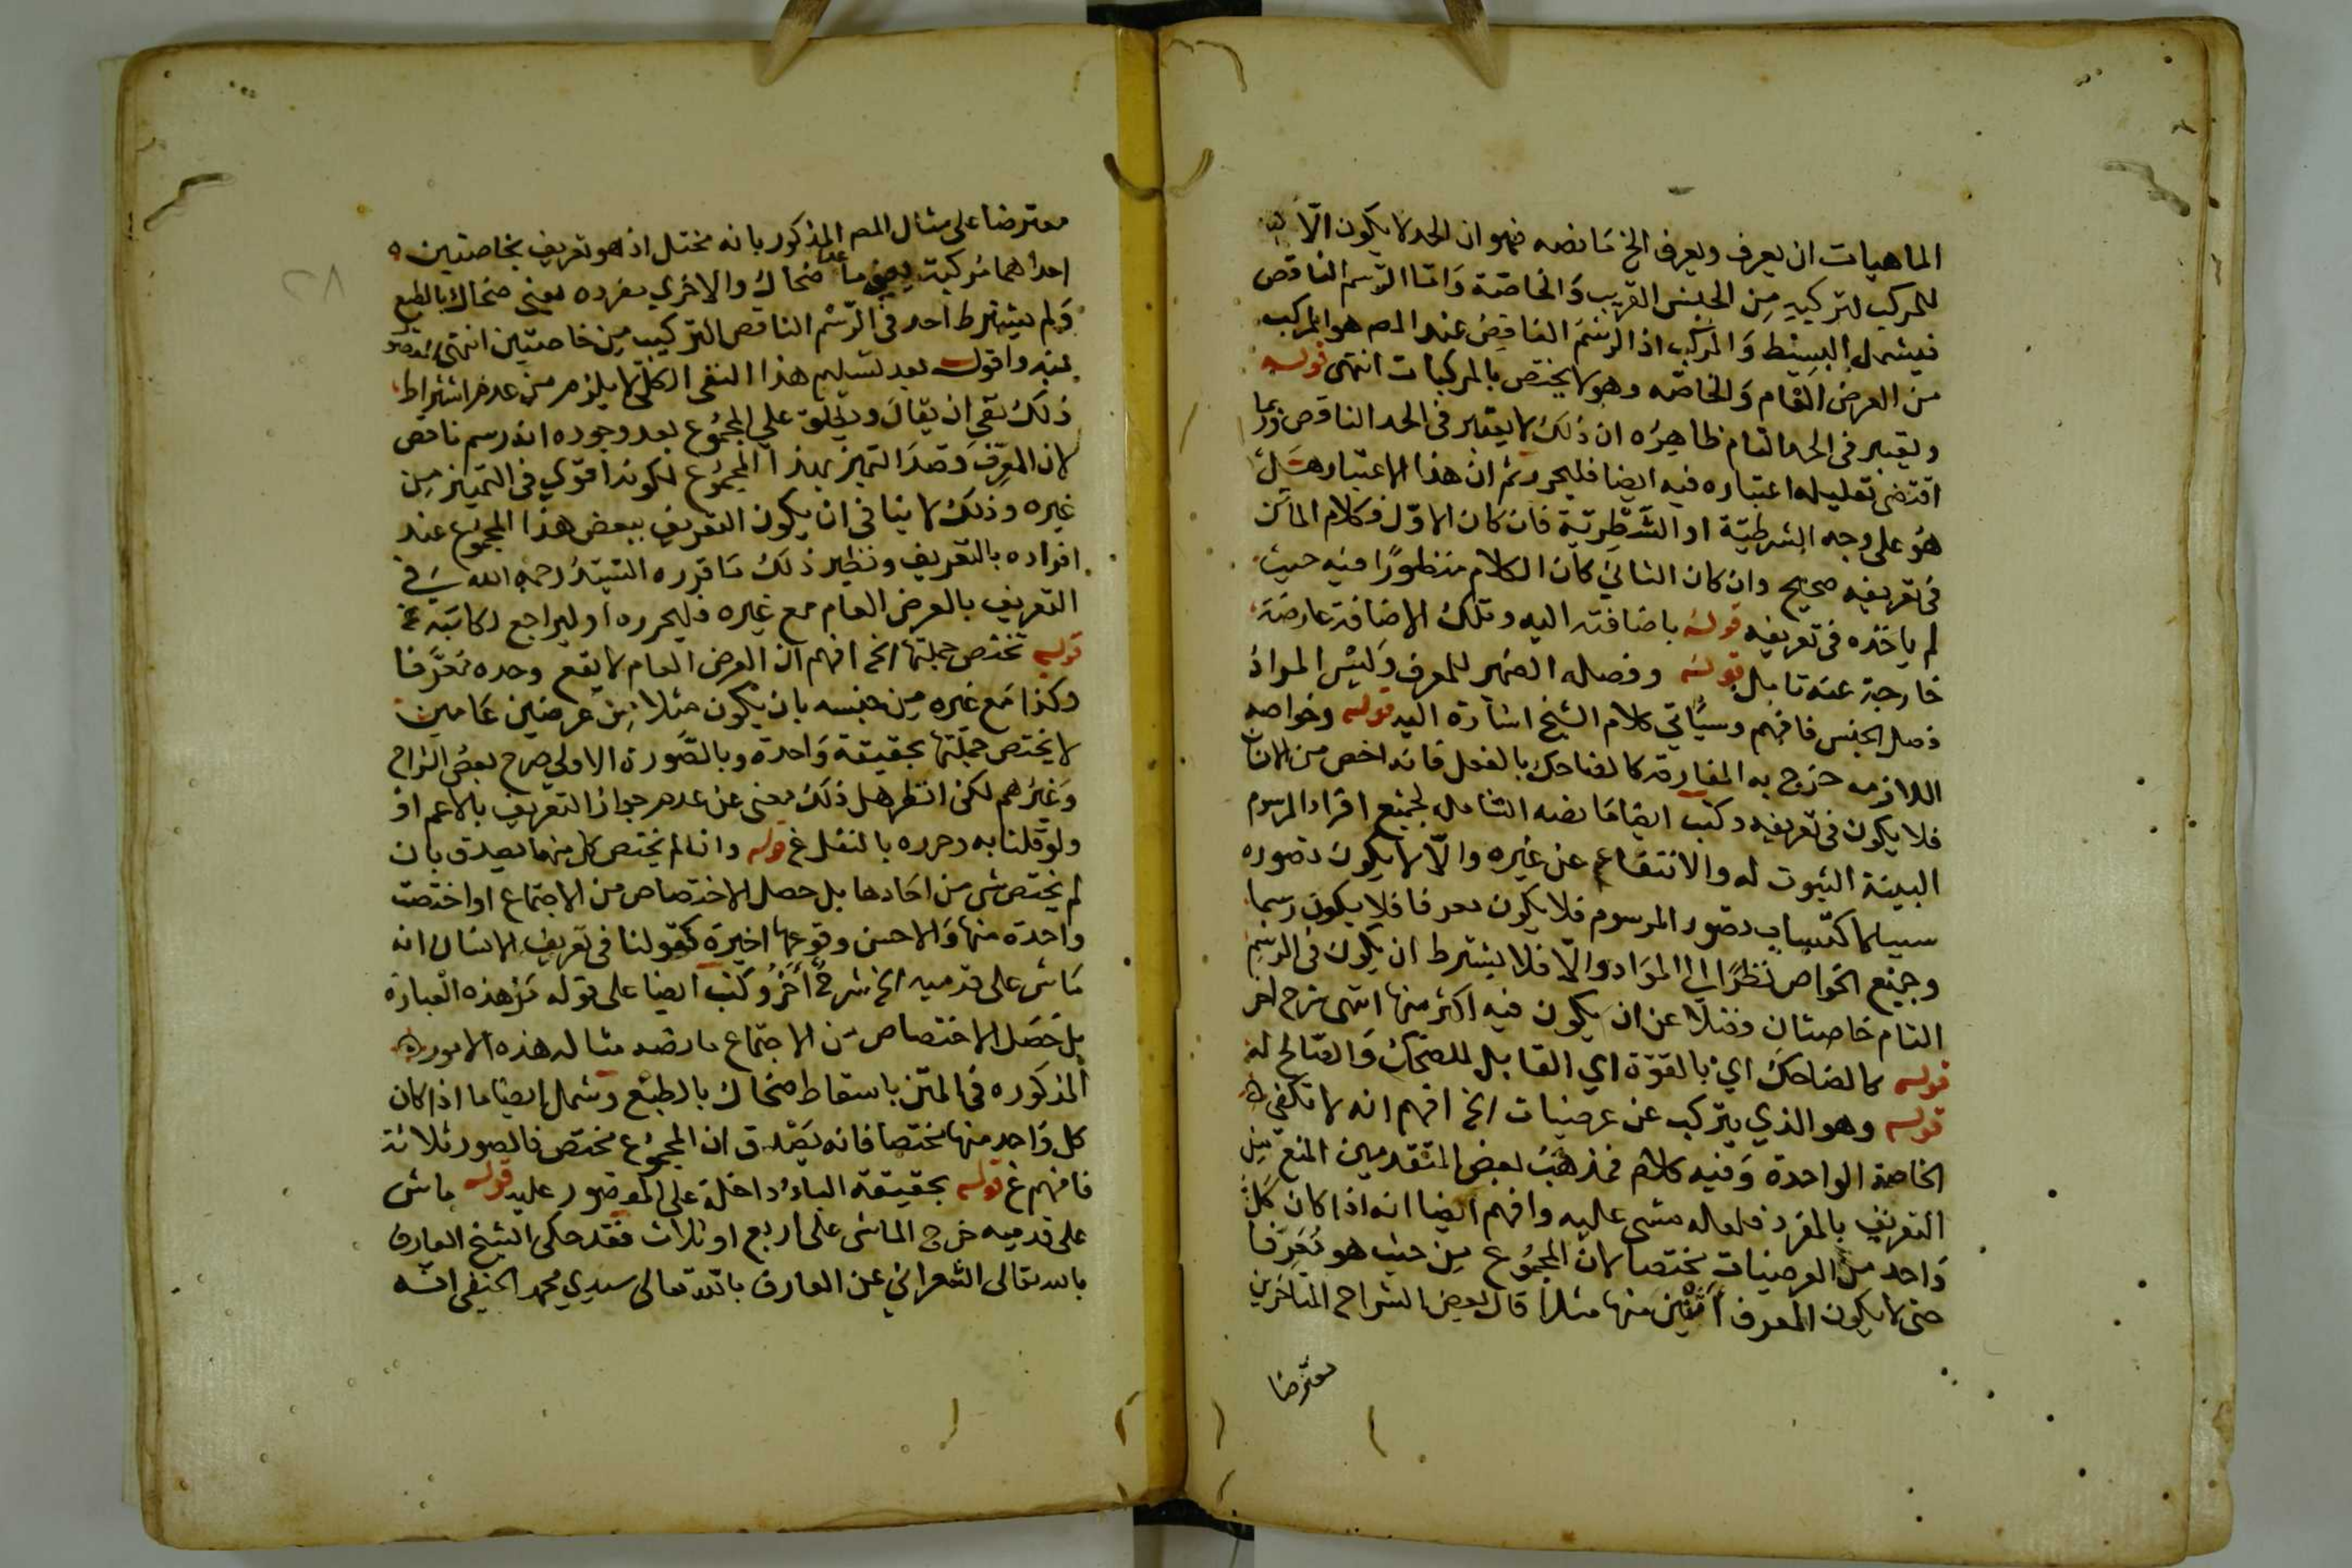 الماهيات ان يعرف ويعرف الخ مانصه فهو ان الحد لا يكون الا
للمركب لتركيبه من الجنس القريب والخاصة واما الرسم الناقص
فيشمل البسيط والمركب اذ الرسم الناقص عند المص هو المركب
من العرض العام والخاصه وهو لا يختص بالمركبات انتهى قوله
ويعتبر في الحد التام ظاهره ان ذلك لا يعتبر في الحد الناقص وربما
اقتضى تعليله اعتباره فيه ايضا فليحرر ثم ان هذا الاعتبار هل
هو على وجه الشرطية او الشطرية فان كان الاول فكلام الماتن
في تعريفه صحيح وان كان الثاني كان الكلام منظورا فيه حيث
لم ياخذه في تعريفه قوله باضافته اليه وتلك الاضافة عارضة
خارجة عنه تامل قوله وفصله الضمير للمعرف وليس المراد
فصل الجنس فافهم وسياتي كلام الشيخ اشارة اليه قوله وخواصه
اللازمه خرج به المفارقة كالضاحك بالفعل فانه اخص من الانسان
فلا يكون في تعريفه وكتب ايضا مانصه الشامل لجميع افراد المرسوم
البينة الثبوت له والانتفاء عن غيره والا لا يكون تصوره
سببا لاكتساب تصور المرسوم فلا يكون معرفا فلا يكون رسما
وجميع الخواص نظرا الى المواد والا فلا يشترط ان يكون في الرسم
التام خاصتان فضلا عن ان يكون فيه اكثر منها انتهى شرح اخر
قوله كالضاحك اي بالقوة اي القابل للضحك والصالح له
قوله وهو الذي يتركب عن عرضيات الخ افهم انه لا تكفي
الخاصة الواحدة وفيه كلام فمذهب بعض المتقدمين المنع من
التعريف بالمفرد فلعله مشى عليه وافهم ايضا انه اذا كان كل
واحد من العرضيات مختصا لان المجموع من حيث هو معرفا
حتى لا يكون المعرف اثنين منها مثلا قال بعض الشراح المتاخرين
معترضا
معترضا على مثال المص المذكور بانه مختل اذ هو تعريف بخاصتين
احداهما مركبة يعني ما عدا ضحاك والاخرى مفرده يعني ضحاك بالطبع
ولم يشترط احد في الرسم الناقص التركيب من خاصتين انتهى
منه واقول بعد تسليم هذا النفي الكلي لا يلزم من عدم اشتراط
ذلك نفي ان يقال ويطلق على المجموع بعد وجوده انه رسم ناقص
لان المعرف قصد التميز بهذا المجموع لكونه اقوي في التميز من
غيره وذلك لا ينافي ان يكون التعريف ببعض هذا المجموع عند
افراده بالتعريف ونظير ذلك ما قرره السيد رحمه الله في
التعريف بالعرض العام مع غيره فليحرره او ليراجع لكاتبه
قوله تختص جملتها الخ افهم ان العرض العام لا يقع وحده معرفا
وكذا مع غيره من جنسه بان يكون مثلا من عرضين عامين
لا يختص جملتها بحقيقة واحدة وبالصورة الاولي صرح بعض الشراح
وغيرهم لكن انظر هل ذلك مغني عن عدم جواز التعريف بالاعم او
ولو قلنا به وحرره بالنقل غ قوله وان لم يختص كل منها يصدق بان
لم يختص شي من احادها بل حصل الاختصاص من الاجتماع او اختصت
واحدة منها والاحسن وقوعها اخيرة كقولنا في تعريف الانسان انه
ماش على قدميه الخ شرح اخر وكتب ايضا على قوله من هذه العبارة
بل حصل الاختصاص من الاجتماع مانصه مثاله هذه الامور
المذكوره في المتن باسقاط ضحاك بالطبع وشمل ايضا ما اذا كان
كل واحد منها مختصا فانه يصدق ان المجموع مختص فالصور ثلاثة
فافهم غ قوله بحقيقة الباء داخلة على المقصور عليه قوله ماش
على قدميه خرج الماشي على اربع او ثلاث فقد حكى الشيخ العارف
بالله تعالى الشعراني عن العارف بالله تعالى سيدي محمد الحنفي انه